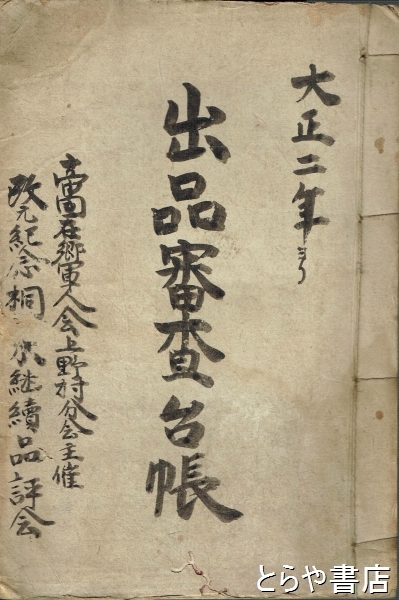 大正二年ヨリ
出品審査台帳
帝国在郷軍人会上野村分会主催
改元紀念桐 水継続品評会
とらや書店